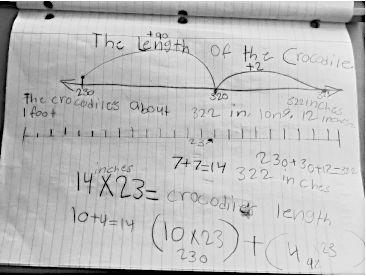 +90
The Length of the Crocodile
+2
230 320 322
322 inches
The crocodiles about 322 in. long. 12 inches=
1 foot
23
7+7=14 230+30+12=
322 inches
inches
14X23= crocodile length
10+4=14 (10X23) + (4X23
230 92